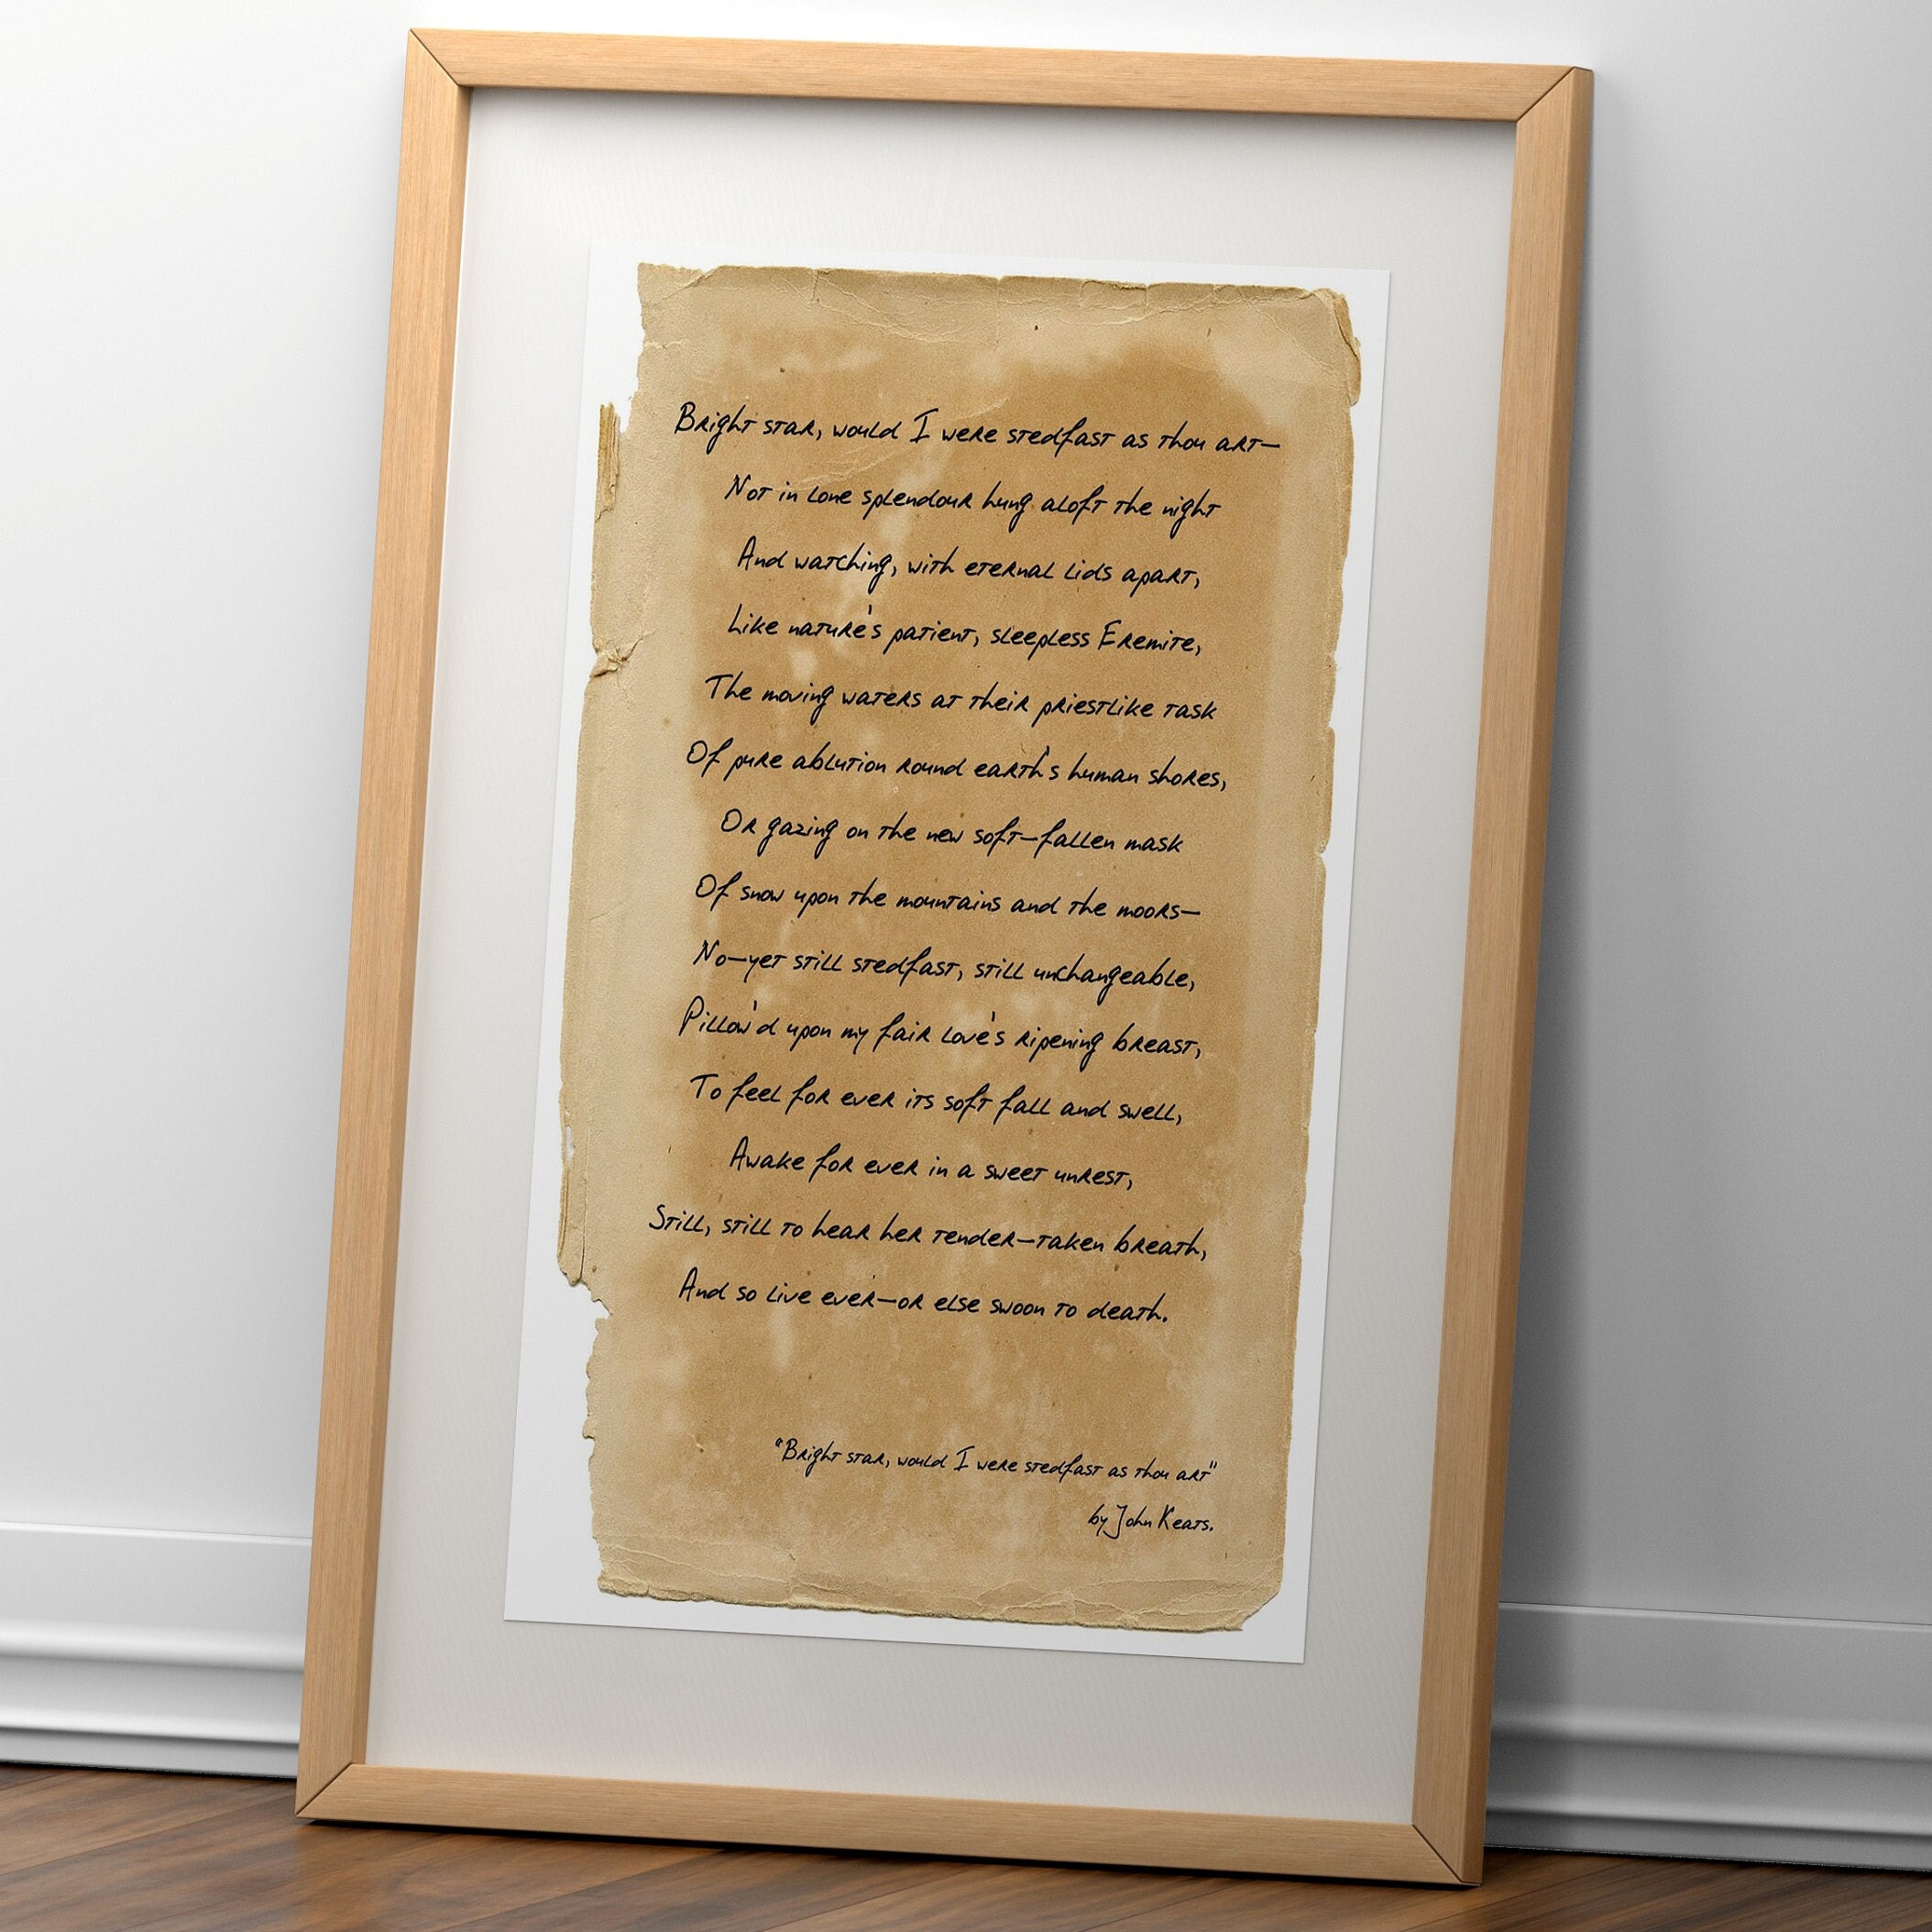 Bright star, would I were stedfast as thou art—
Not in lone splendour hung aloft the night
And watching, with eternal lids apart,
Like nature's patient, sleepless Eremite,
The moving waters at their priestlike task
Of pure ablution round earth's human shores,
Or gazing on the new soft—fallen mask
Of snow upon the mountains and the moors—
No—yet still stedfast, still unchangeable,
Pillow'd upon my fair love's ripening breast,
To feel for ever its soft fall and swell,
Awake for ever in a sweet unrest,
Still, still to hear her tender—taken breath,
And so live ever—or else swoon to death.
"Bright star, would I were stedfast as thou art"
by John Keats.